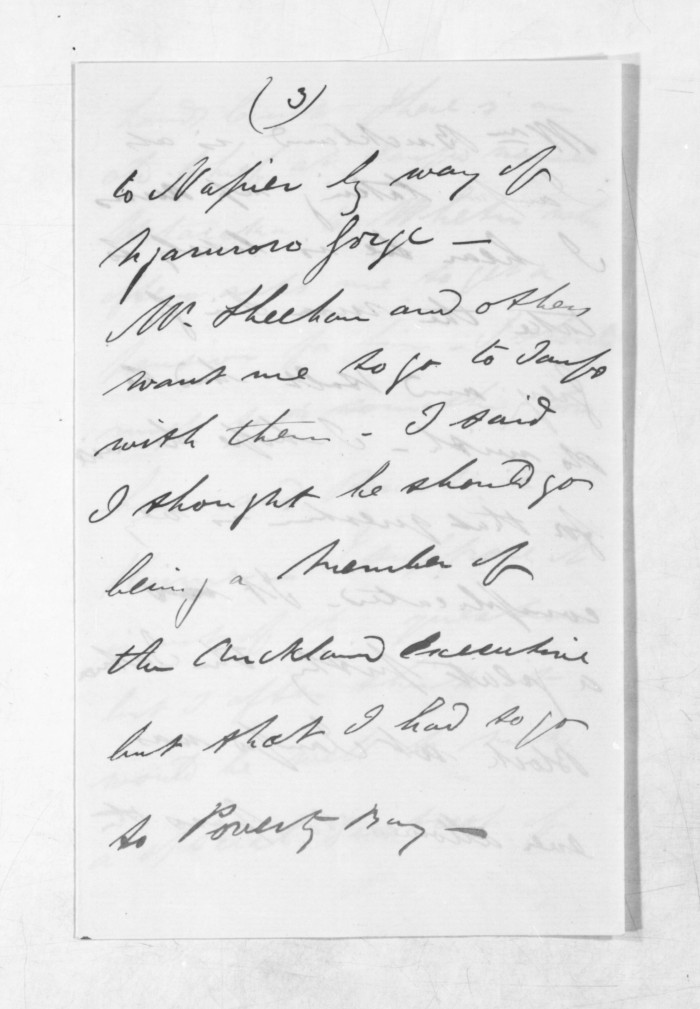 (3)
to Napier by way of
Ngaruroro Gorge —
Mr. Sheehan and others
want me to go to Taupo
with them - I said
I thought he should go
being a Member of
the Auckland Executive
but that I had to go
to Poverty Bay —